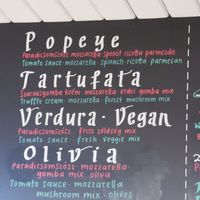 Popeye
Paradicsomszósz · mozzarella · spenót · ricotta · parmezán
Tomato sauce · mozzarella · spinach · ricotta · parmesan
Tartufata
Szarvasgomba krém · mozzarella · erdei gomba mix
Truffle cream · mozzarella · forest mushroom mix
Verdura · Vegan
Paradicsomszósz · friss zöldség mix
Tomato sauce · fresh veggie mix
Olivia
Paradicsomszósz · mozzarella
gomba mix · oliva
Tomato sauce · mozzarella
mushroom mix · olives